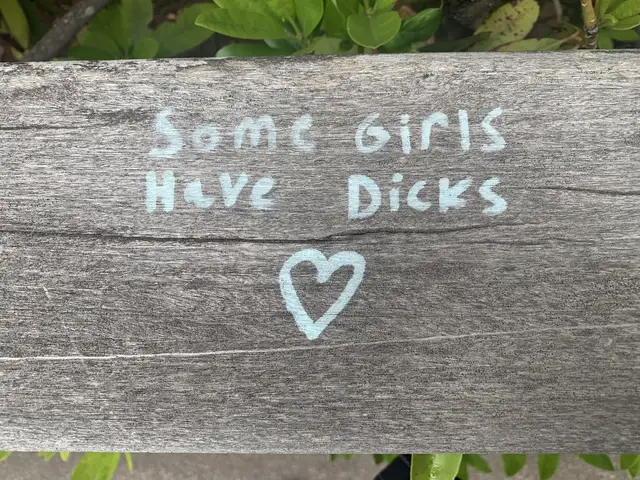 Some Girls
Have Dicks